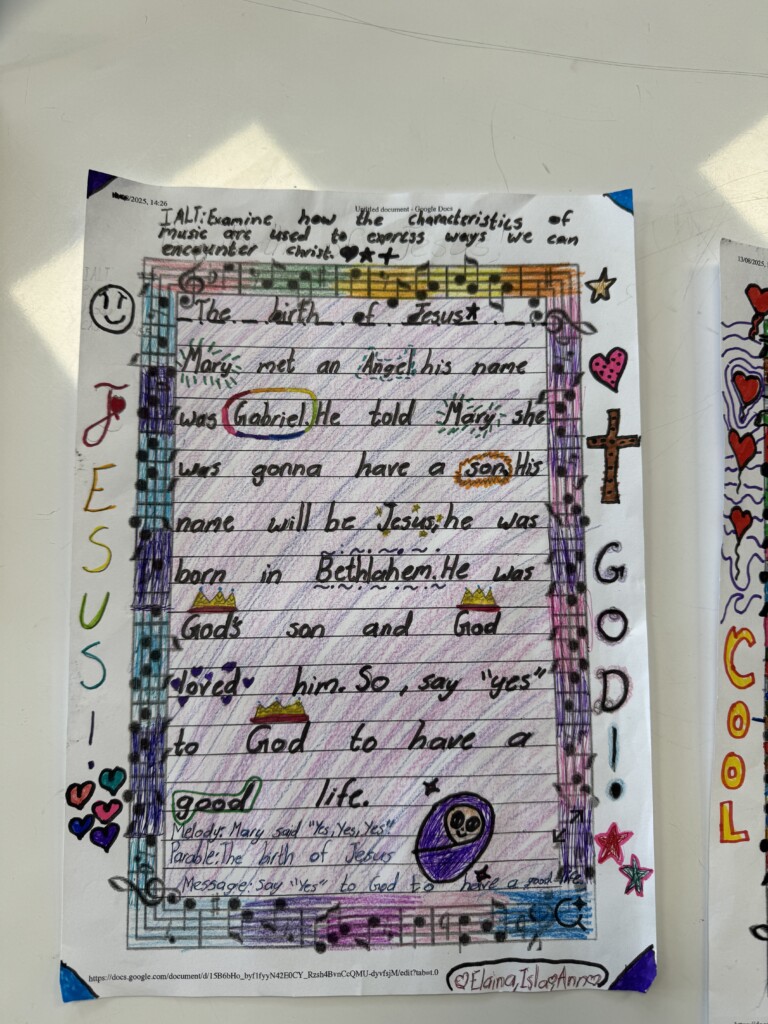 /2025, 14:26
Untitled document - Google Docs
IALT: Examine how the characteristics of
music are used to express ways we can
encounter christ.
The birth of Jesus
Mary met an Angel his name
was Gabriel. He told Mary she
was gonna have a son. His
name will be Jesus, he was
born in Bethlahem. He was
God's son and God
loved him. So, say "yes"
to God to have a
good life.
Melody: Mary said "Yes, Yes, Yes"
Parable: The birth of Jesus
Message: say "Yes" to God to have a good life
JESUS!
GOD!
https://docs.google.com/document/d/15B6bHo_byf1fyyN42E0CY_Rzsh4BvnCcQMU-dyvfsjM/edit?tab=t.0
Elaina, Isla, Ann
13/06/2025,
COOL